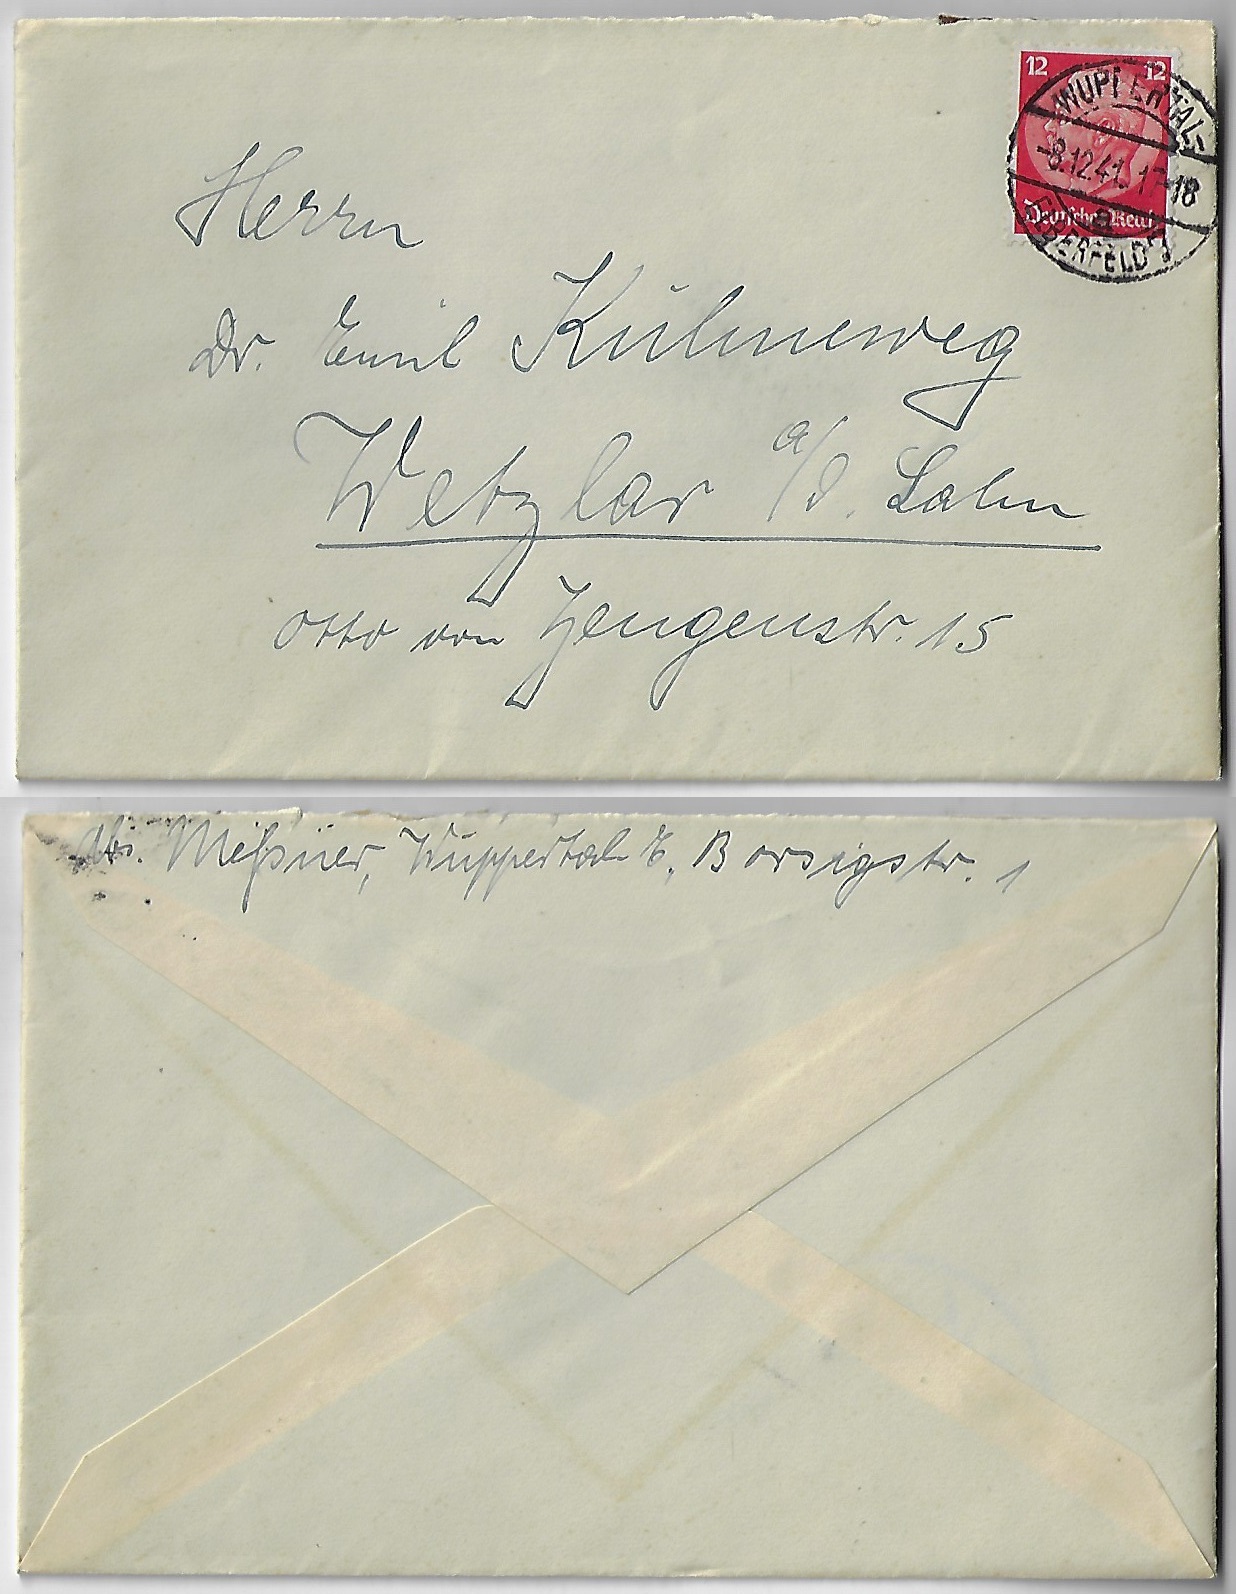 12 12
Deutsches Reich
WUPPERTAL-
-8.12.41. 17-18
ELBERFELD
Herrn
Dr. Emil Kühneweg
Wetzlar a/d. Lahn
Otto von Zengenstr. 15
Meßner, Wuppertal E, Borsigstr. 1